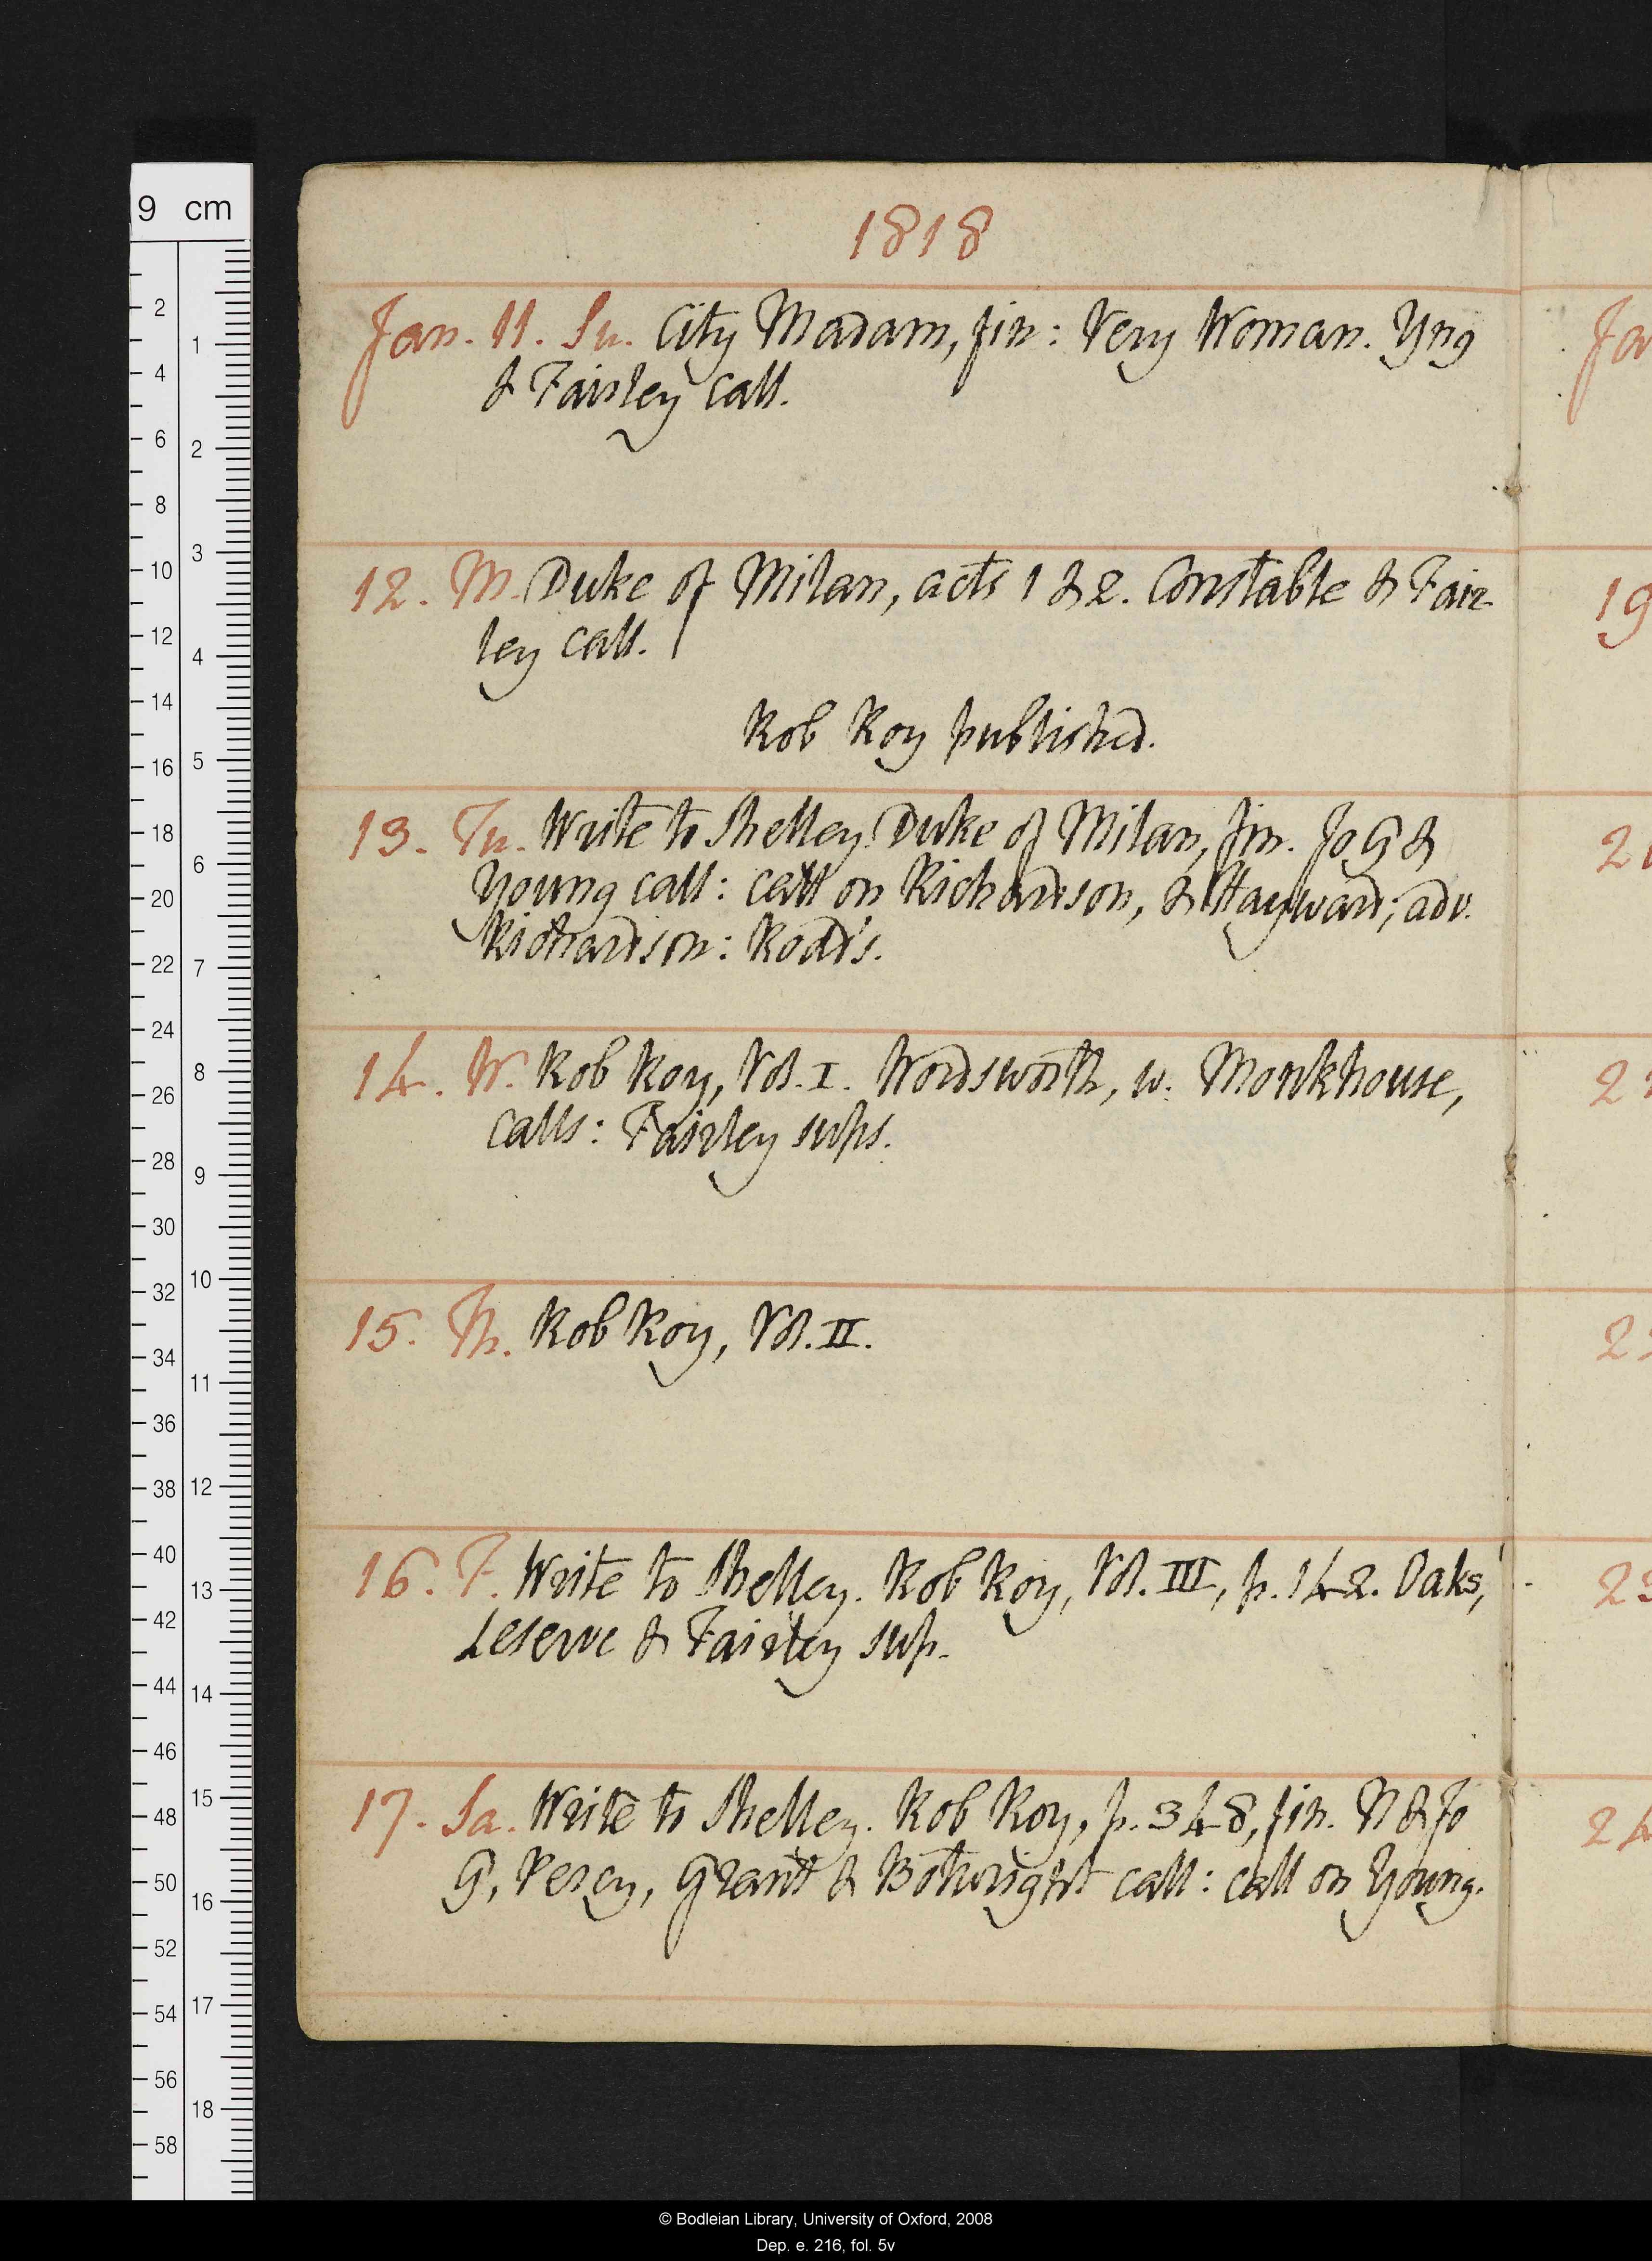 1818
Jan. 11. Su. City Madam, fin: Very Woman. Yng
& Fairley call.
12. M. Duke of Milan, acts 1 & 2. Constable & Fair-
ley call.
Rob Roy published.
13. Tu. Write to Shelley. Duke of Milan, fin. Jo G &
Young call: call on Richardson, & Hayward; adv.
Richardson: Rodd's.
14. W. Rob Roy, Vol. I. Wordsworth, w. Monkhouse,
calls: Fairley sups.
15. Th. Rob Roy, Vol. II.
16. F. Write to Shelley. Rob Roy, Vol. III, p. 142. Oaks,
Leserve & Fairley sup.
17. Sa. Write to Shelley. Rob Roy, p. 348, fin. N & Jo
G, Percy, Grant & Botwright call: call on Young.
Ja
19
2
2
2
23
24
9 cm
2
4
6
8
10
12
14
16
18
20
22
24
26
28
30
32
34
36
38
40
42
44
46
48
50
52
54
56
58
1
2
3
4
5
6
7
8
9
10
11
12
13
14
15
16
17
18
© Bodleian Library, University of Oxford, 2008
Dep. e. 216, fol. 5v